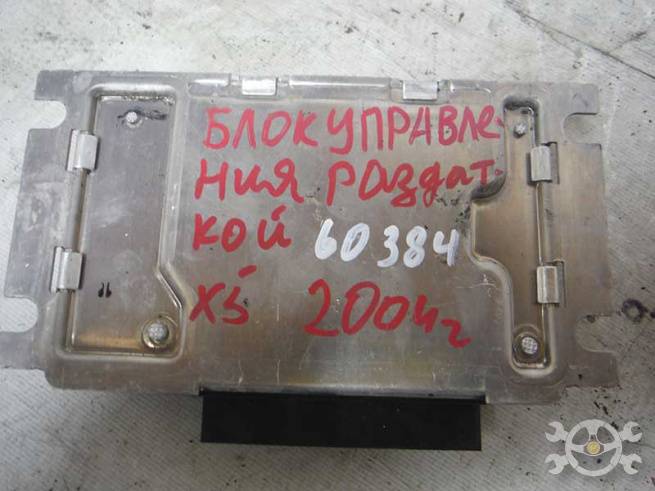 БЛОК УПРАВЛЕ-
НИЯ РАЗДАТ-
КОЙ 60384
X5 2004г